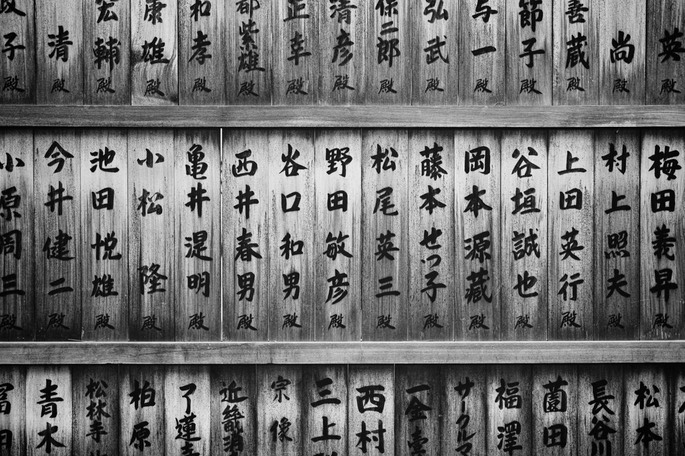 英殿
尚殿
善蔵殿
節子殿
与一殿
弘武殿
保三郎殿
清彦殿
正幸殿
紫雄殿
和孝殿
康雄殿
宏輔殿
清殿
政子殿
梅田義昇殿
村上照夫殿
上田英行殿
谷垣誠也殿
岡本源蔵殿
藤本せつ子殿
松尾英三殿
野田敏彦殿
谷口和男殿
西井春男殿
亀井湜明殿
小松隆殿
池田悦雄殿
今井健二殿
小原周三殿
松本
長谷川
薗田
福澤
サークルマ
一金
西村
三上
宗像
近畿消
了蓮寺
柏原
松林寺
青木
冨